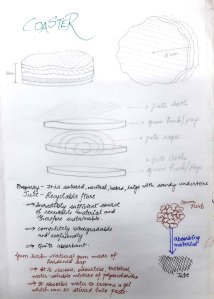 COASTER
5 cm
→ jute cloth
→ gum herb/pop
→ jute rope
→ gum herb/pop
→ jute cloth
Property - It is natural, neutral, beige with sandy undertone
Jute - Recyclable fibre
→ Incredibly sufficient source
of renewable material and
therefore sustainable
→ completely biodegradable
and ecofriendly
→ Quite absorbent
gum herb - natural gum made of
→ It is viscous, odourless, tasteless,
water soluble mixture of polysaccharides
→ It absorbs water to become a gel
which can be stirred into paste
Gum
Herb
absorbing
material
Jute